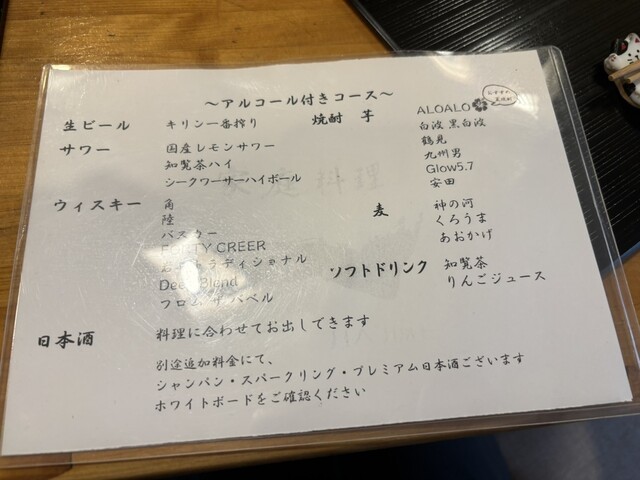 ～アルコール付きコース～
生ビール キリン一番搾り
サワー 国産レモンサワー
知覧茶ハイ
シークワーサーハイボール
ウィスキー 角
陸
バスカー
CREER
ディショナル
Deep Blend
フロム ザ バベル
日本酒 料理に合わせてお出しできます
焼酎 芋 ALOALO
おすすめ
白波 黒白波
鶴見
九州男
Glow5.7
安田
麦 神の河
くろうま
あおかげ
ソフトドリンク 知覧茶
りんごジュース
別途追加料金にて、
シャンパン・スパークリング・プレミアム日本酒ございます
ホワイトボードをご確認ください